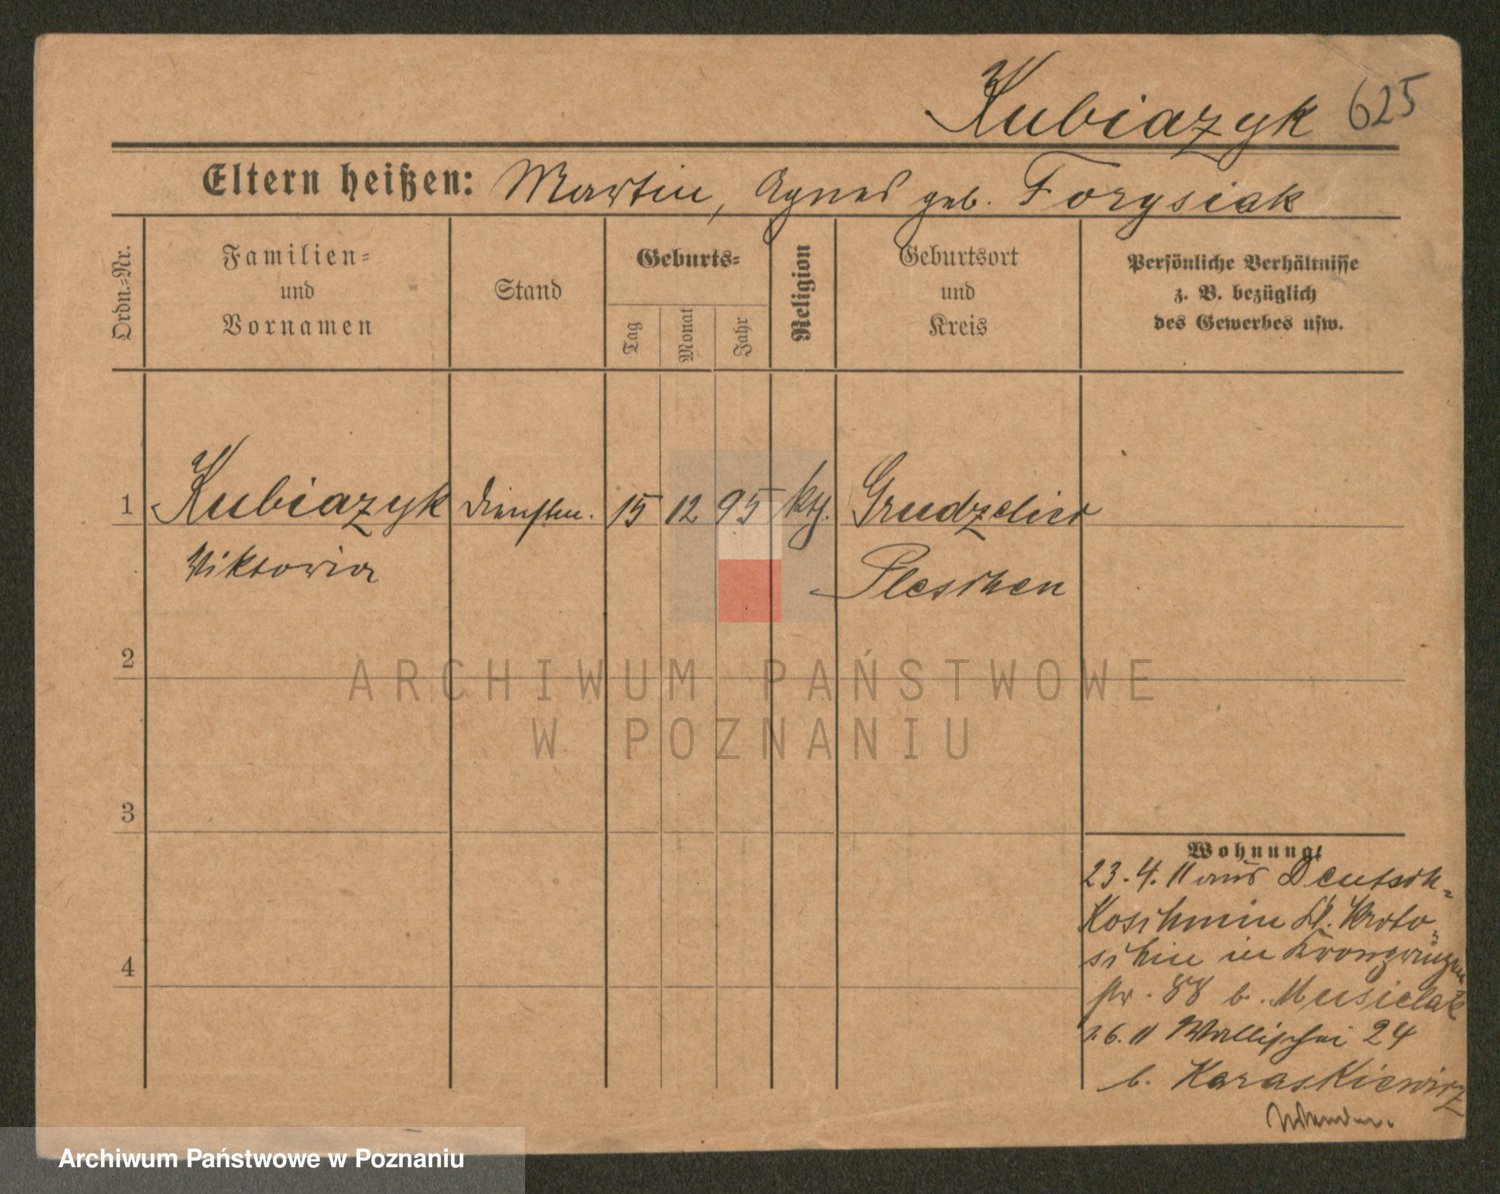 Kubiazyk 625
Eltern heißen: Martin, Agnes geb. Forysiak
Ordn.-Nr.
Familien-
und
Vornamen
Stand
Geburts-
Tag
Monat
Jahr
Religion
Geburtsort
und
Kreis
Persönliche Verhältnisse
z. B. bezüglich
des Gewerbes usw.
1 Kubiazyk Dienstm. 15 12 95 kth. Grudzelier
Viktoria Pleschen
2
ARCHIWUM PAŃSTWOWE
W POZNANIU
3
4
Wohnung:
23.4.11 aus Deutsch-
Koschmin Kr. Kroto-
schin in Kronprinzen
str. 88 b. Musielak
1.6.11 Wallischei 24
b. Karaskiewicz
Archiwum Państwowe w Poznaniu